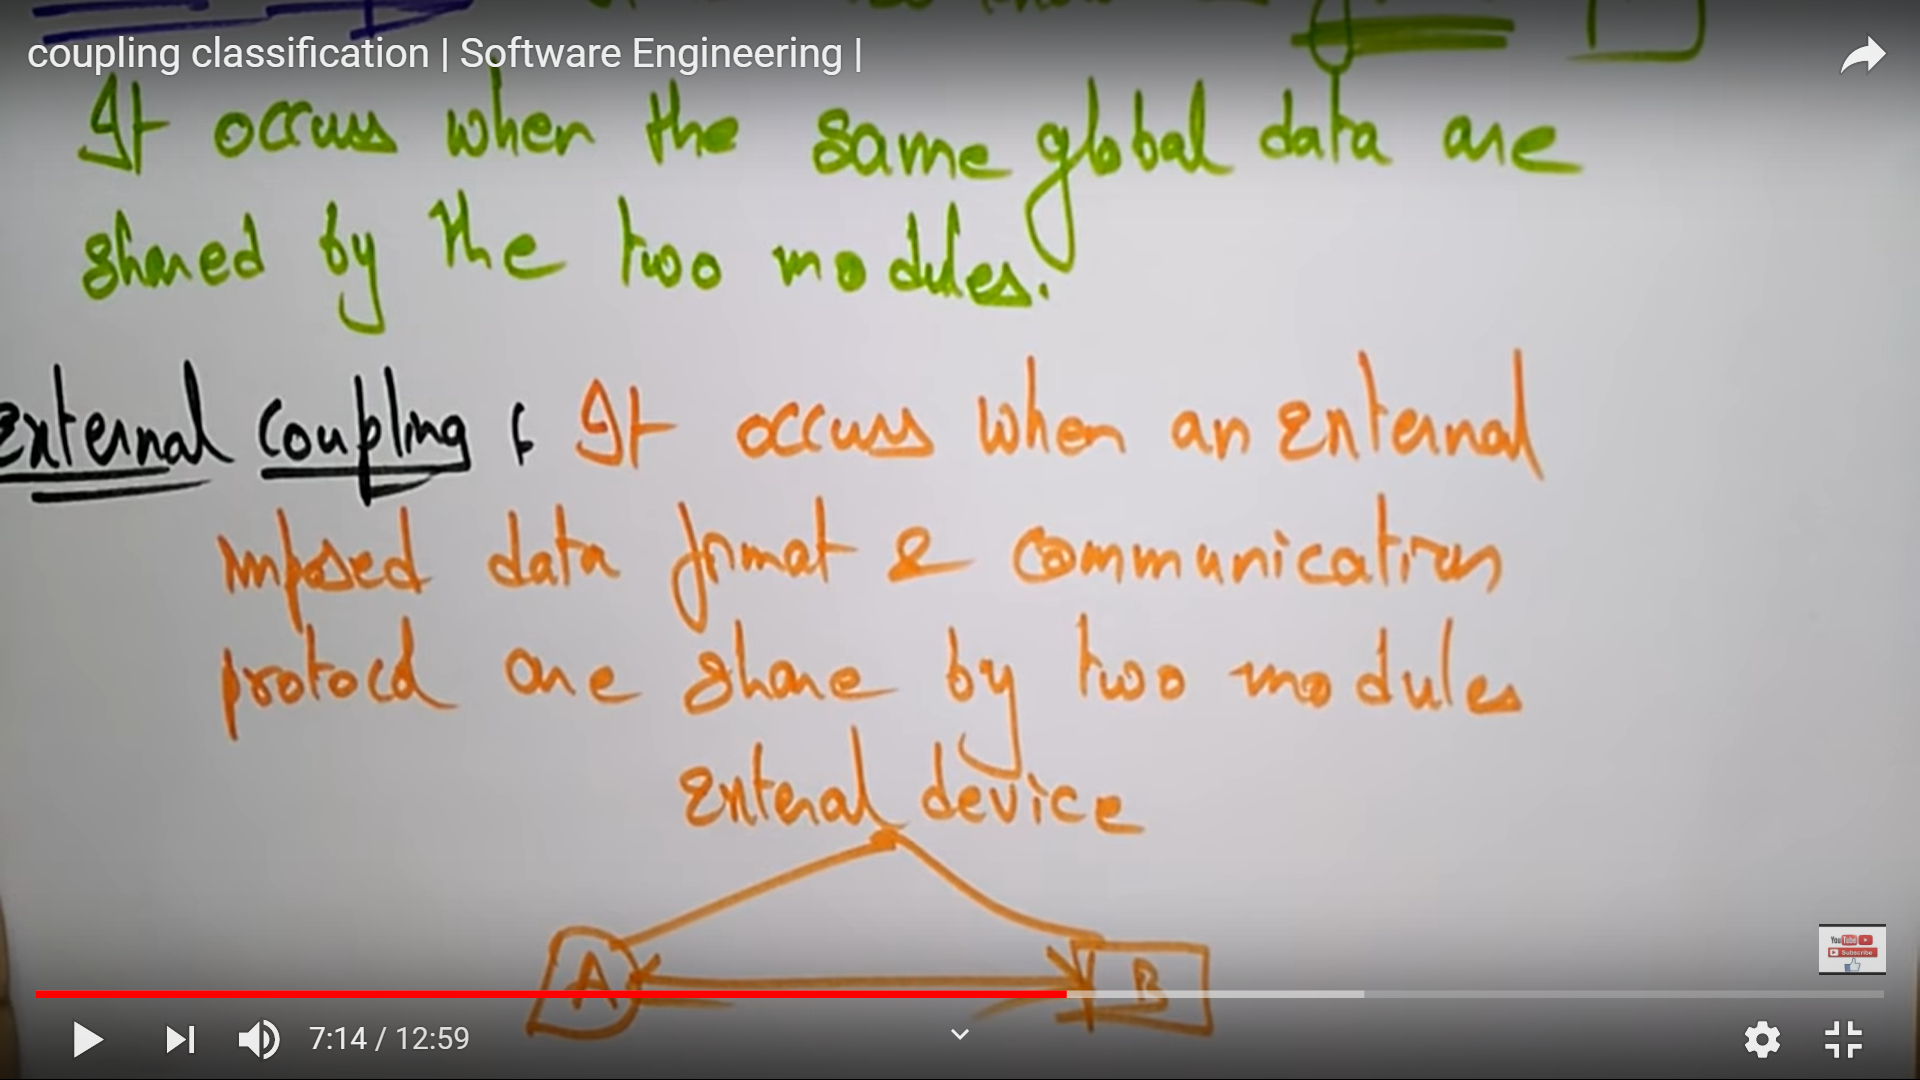 coupling classification | Software Engineering |
It occurs when the same global data are
shared by the two modules.
External Coupling : It occurs when an External
imposed data format & communication
protocol are share by two modules
External device
A B
YouTube
Subscribe
7:14 / 12:59